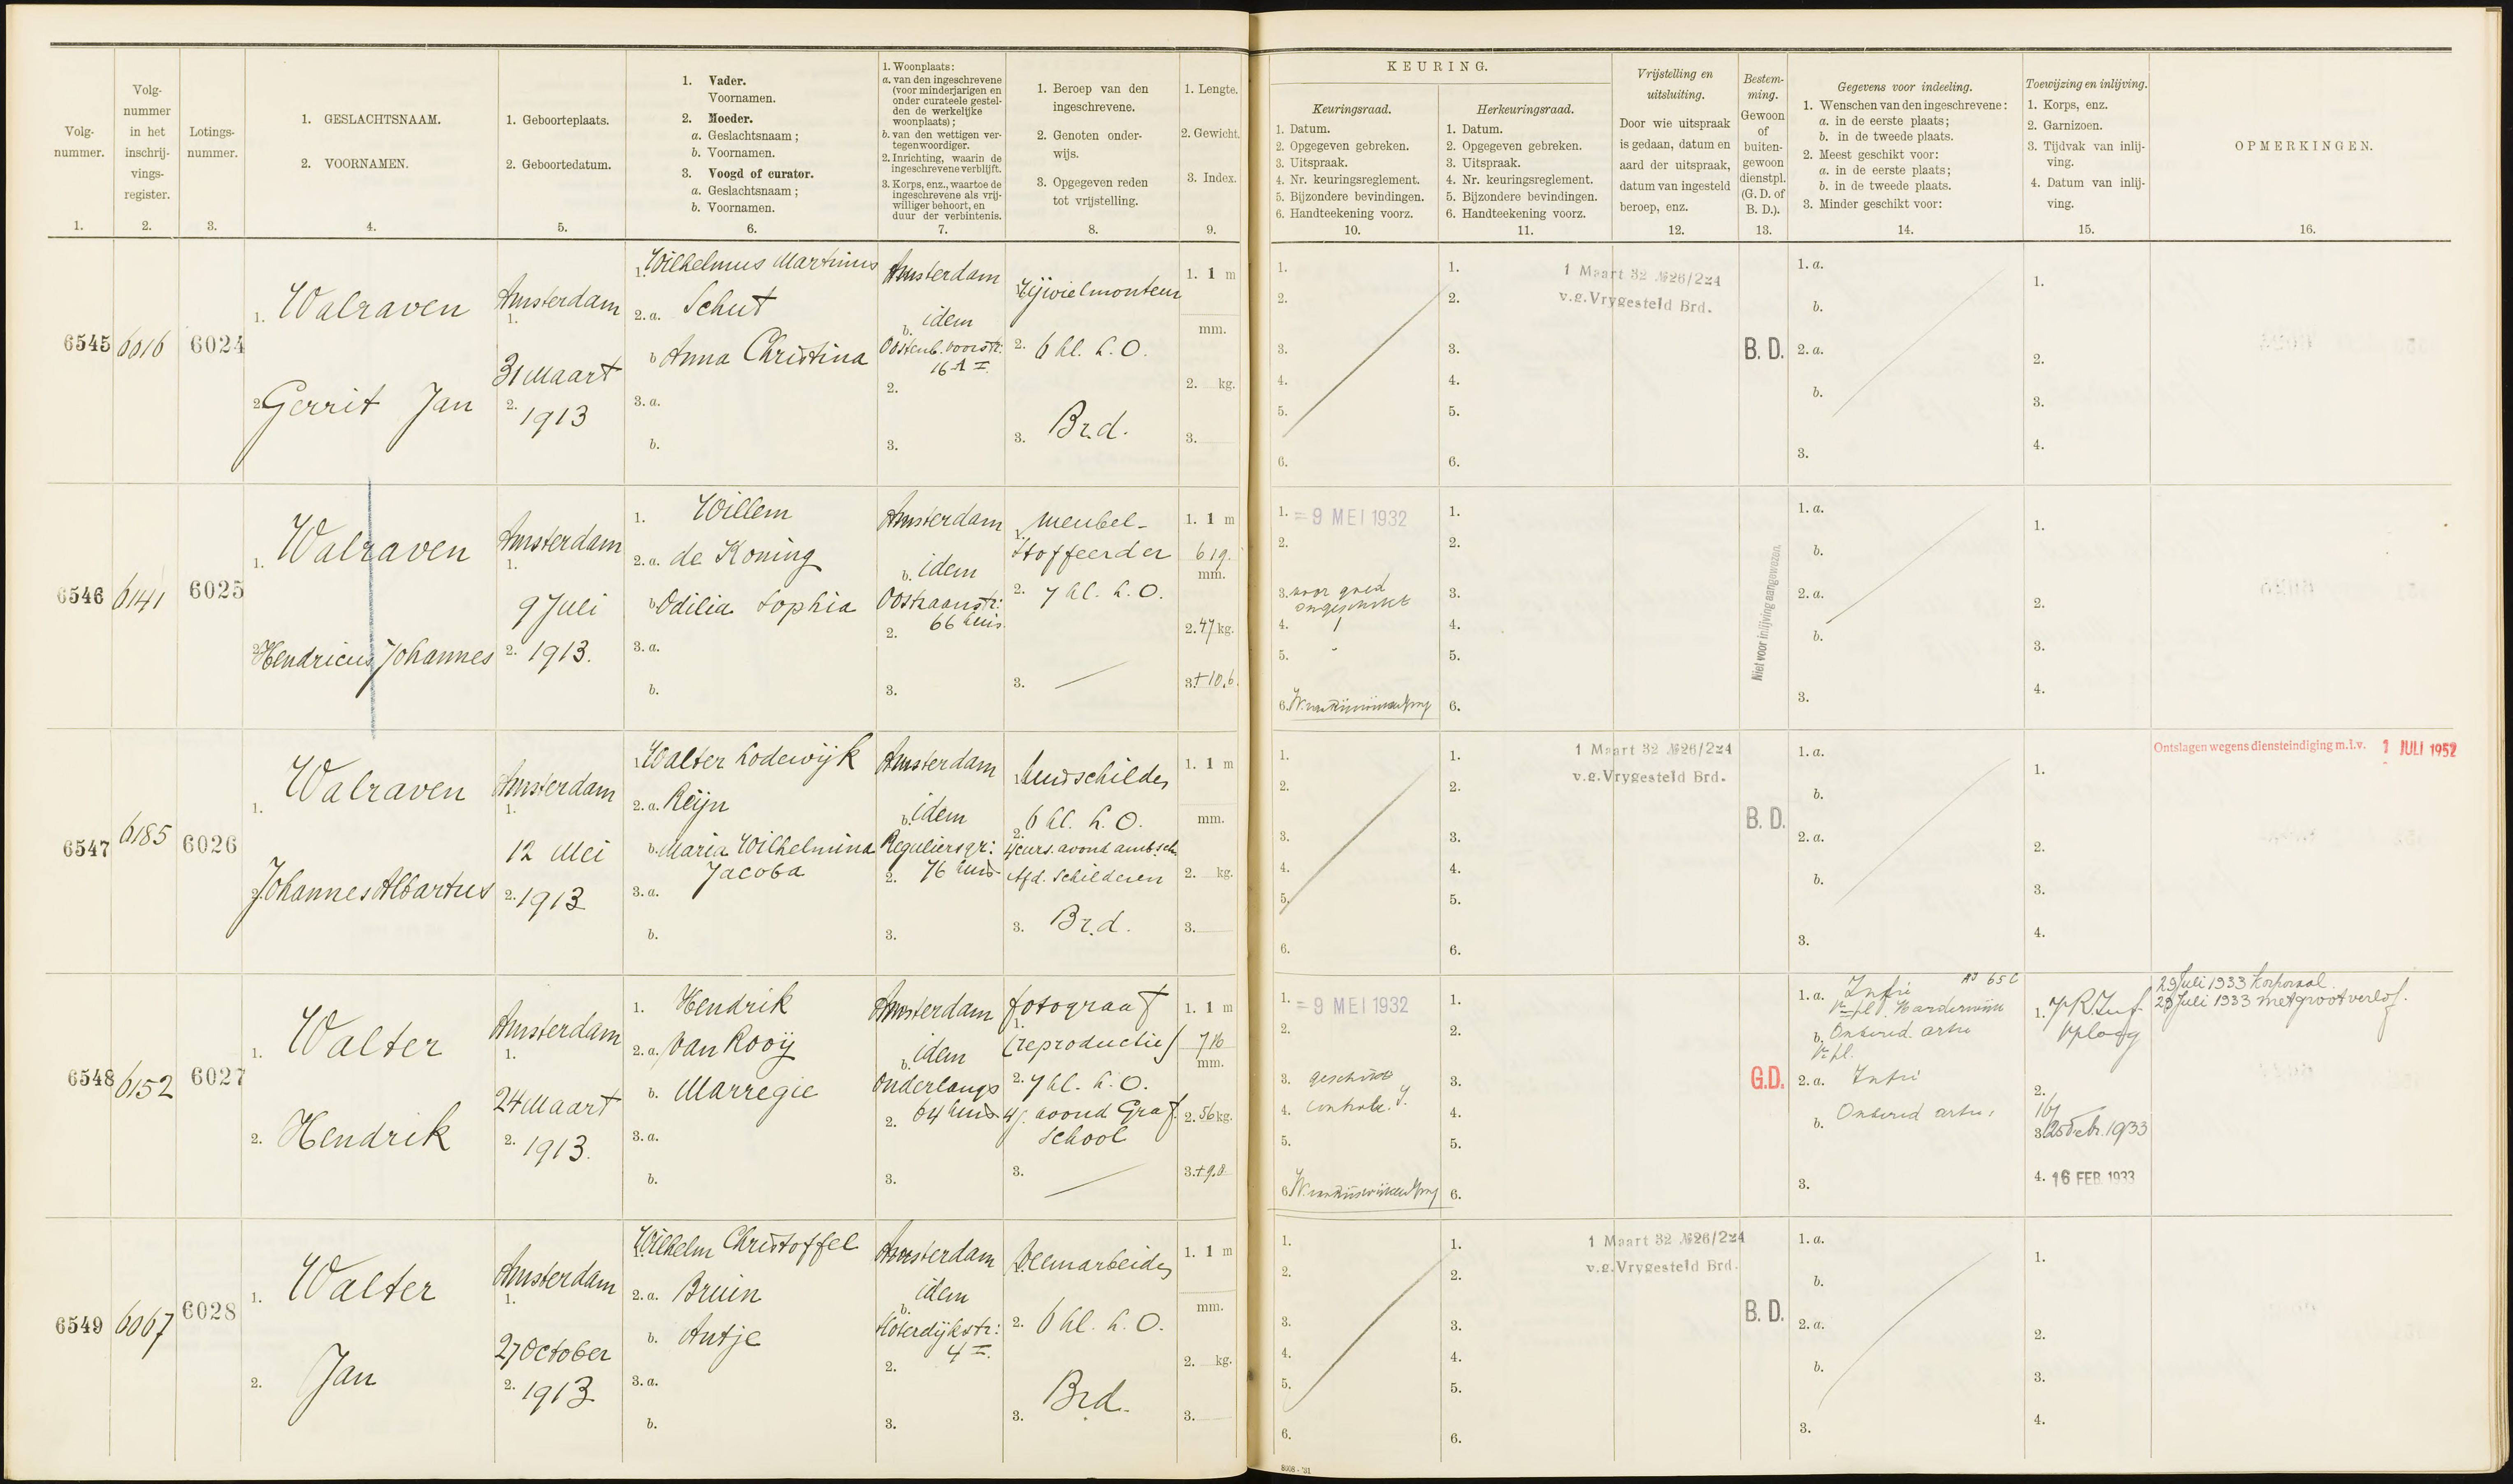 Volg-
nummer.
1.
Volg-
nummer
in het
inschrij-
vings-
register.
2.
Lotings-
nummer.
3.
1. GESLACHTSNAAM.
2. VOORNAMEN.
4.
1. Geboorteplaats.
2. Geboortedatum.
5.
1. Vader.
Voornamen.
2. Moeder.
a. Geslachtsnaam;
b. Voornamen.
3. Voogd of curator.
a. Geslachtsnaam;
b. Voornamen.
6.
1. Woonplaats:
a. van den ingeschrevene
(voor minderjarigen en
onder curateele gestel-
den de werkelijke
woonplaats);
b. van den wettigen ver-
tegenwoordiger.
2. Inrichting, waarin de
ingeschrevene verblijft.
3. Korps, enz., waartoe de
ingeschrevene als vrij-
williger behoort, en
duur der verbintenis.
7.
1. Beroep van den
ingeschrevene.
2. Genoten onder-
wijs.
3. Opgegeven reden
tot vrijstelling.
8.
1. Lengte.
2. Gewicht.
3. Index.
9.
KEURING.
Keuringsraad.
1. Datum.
2. Opgegeven gebreken.
3. Uitspraak.
4. Nr. keuringsreglement.
5. Bijzondere bevindingen.
6. Handteekening voorz.
10.
Herkeuringsraad.
1. Datum.
2. Opgegeven gebreken.
3. Uitspraak.
4. Nr. keuringsreglement.
5. Bijzondere bevindingen.
6. Handteekening voorz.
11.
Vrijstelling en
uitsluiting.
Door wie uitspraak
is gedaan, datum en
aard der uitspraak,
datum van ingesteld
beroep, enz.
12.
Bestem-
ming.
Gewoon
of
buiten-
gewoon
dienstpl.
(G. D. of
B. D.).
13.
Gegevens voor indeeling.
1. Wenschen van den ingeschrevene:
a. in de eerste plaats;
b. in de tweede plaats.
2. Meest geschikt voor:
a. in de eerste plaats;
b. in de tweede plaats.
3. Minder geschikt voor:
14.
Toewijzing en inlijving.
1. Korps, enz.
2. Garnizoen.
3. Tijdvak van inlij-
ving.
4. Datum van inlij-
ving.
15.
OPMERKINGEN.
16.
6545
6016
6024
1. Walraven
2. Gerrit Jan
Amsterdam
1.
31 Maart
2. 1913
1. Wilhelmus Martinus
2. a. Schut
b Anna Christina
3. a.
b.
Amsterdam
b. idem
Oostenb. voorstr:
16 A I
2.
3.
Rijwielmonteur
2. 6 kl. L.O.
3. Br.d.
1. 1 m
mm.
2. kg.
3.
1.
2.
3.
4.
5.
6.
1.
2.
3.
4.
5.
6.
1 Maart 32 №26/224
v.g. Vrygesteld Brd.
B. D.
1. a.
b.
2. a.
b.
3.
1.
2.
3.
4.
6546
6141
6025
1. Walraven
2. Hendricus Johannes
Amsterdam
1.
9 Juli
2. 1913.
1. Willem
2. a. de Koning
b Odilia Sophia
3. a.
b.
Amsterdam
b. idem
Oostzaanstr:
66 huis
2.
3.
1. meubel-
stoffeerder
2. 7 kl. L.O.
3. —
1. 1 m
619.
mm.
2. 47 kg.
3. +10.6.
1. = 9 MEI 1932
2.
3. voor goed
ongeschikt
4. 1
5. -
6.
1.
2.
3.
4.
5.
6.
Niet voor inlijving aangewezen.
1. a.
b.
2. a.
b.
3.
1.
2.
3.
4.
6547
6185
6026
1. Walraven
2. Johannes Albartus
Amsterdam
1.
12 Mei
2. 1913
1. Walter Lodewijk
2. a. Reijn
b. Maria Wilhelmina
Jacoba
3. a.
b.
Amsterdam
b. idem
Reguliersgr:
2. 76 huis
3.
1. huisschilder
2. 6 kl. L.O.
4 curs. avond amb.sch.
Afd. Schilderen
3. Br.d.
1. 1 m
mm.
2. kg.
3.
1.
2.
3.
4.
5.
6.
1.
2.
3.
4.
5.
6.
1 Maart 32 №26/224
v.g. Vrygesteld Brd.
B. D.
1. a.
b.
2. a.
b.
3.
1.
2.
3.
4.
Ontslagen wegens diensteindiging m.i.v. 1 JULI 1952
6548
6152
6027
1. Walter
2. Hendrik
Amsterdam
1.
24 Maart
2. 1913.
1. Hendrik
2. a. van Rooij
b. Marregie
3. a.
b.
Amsterdam
b. idem
Onderlangs
2. 64 huis
3.
fotograaf
1.
(reproductie)
2. 7 kl. L.O.
4 j. avond Graf.
School
3. —
1. 1 m
716
mm.
2. 56 kg.
3. +9.8
1. = 9 MEI 1932
2.
3. geschikt
4.
5.
6.
1.
2.
3.
4.
5.
6.
G.D.
1. a. Infie
Harderwijk
b. Onbered. artie
2. a. Infie
b. Onbered artie
3.
1. 7 R. Inf.
Vploeg
2.
3.
4. 16 FEB. 1933
29 Juli 1933 korporaal.
29 Juli 1933 met groot verlof.
6549
6067
6028
1. Walter
2. Jan
Amsterdam
1.
27 October
2. 1913
1. Wilhelm Christoffel
2. a. Bruin
b. Antje
3. a.
b.
Amsterdam
b. idem
Sloterdijkstr:
4 I.
2.
3.
1. Veemarbeider
2. 6 kl. L.O.
3. Brd.
1. 1 m
mm.
2. kg.
3.
1.
2.
3.
4.
5.
6.
1.
2.
3.
4.
5.
6.
1 Maart 32 №26/224
v.g. Vrygesteld Brd.
B. D.
1. a.
b.
2. a.
b.
3.
1.
2.
3.
4.
8008 - '31